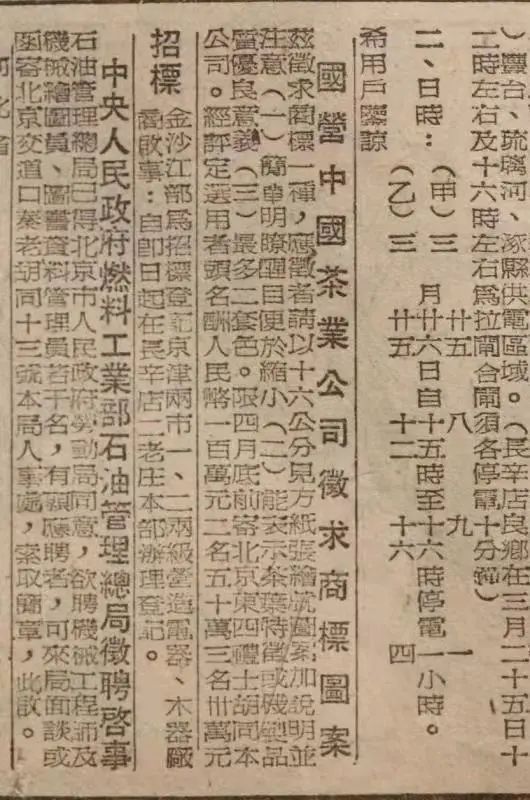 ）豐台、琉璃河、涿縣供電區域。（長辛店良鄉在三月二十五日十
二時左右及十六時左右爲拉閘合閘須各停電十分鐘）
二、日時：（甲）三月廿五 廿六日自八 十五時至九 十六時停電一小時。
（乙）三 廿五 十二 十六 四
希用戶鑒諒
國營中國茶業公司徵求商標圖案
茲徵求商標一種，應徵者請以十六公分見方紙張繪就圖案加說明並
注意（一）簡單明瞭醒目便於縮小（二）能表示茶葉特徵或磯製品
質優良意義（三）最多二套色。限四月底前寄北京東四禮士胡同本
公司。經評定選用者頭名酬人民幣一百萬元二名五十萬三名卅萬元
招標
金沙江部爲招標登記京津兩市一、二兩級營造電器、木器廠
商啟事：自卽日起在長辛店二老庄本部辦理登記。
中央人民政府燃料工業部石油管理總局徵聘啓事
石油管理總局已得北京市人民政府勞動局同意，欲聘機械工程師及
機械繪圖員、圖書資料管理員若干名，有願應聘者，可來局面談或
函寄北京交道口秦老胡同十三號本局人事處，索取簡章，此啟。
河北省